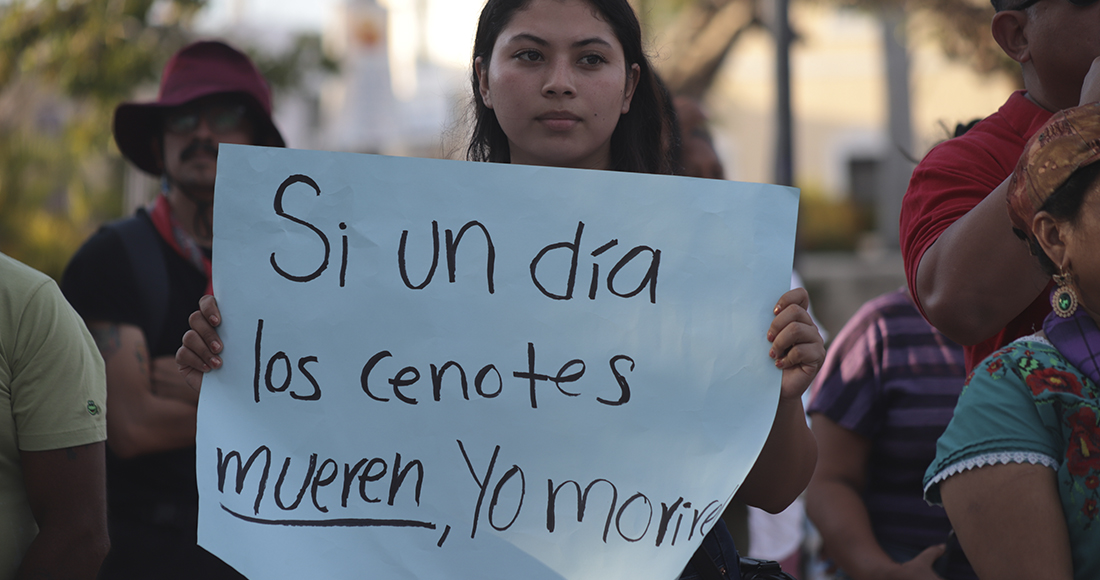 Si un día
los cenotes
mueren, Yo morire